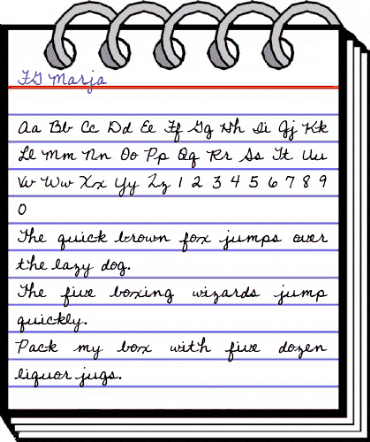 FG Marja
Aa Bb Cc Dd Ee Ff Gg Hh Ii Jj Kk
Ll Mm Nn Oo Pp Qq Rr Ss Tt Uu
Vv Ww Xx Yy Zz 1 2 3 4 5 6 7 8 9
0
The quick brown fox jumps over
the lazy dog.
The five boxing wizards jump
quickly.
Pack my box with five dozen
liquor jugs.